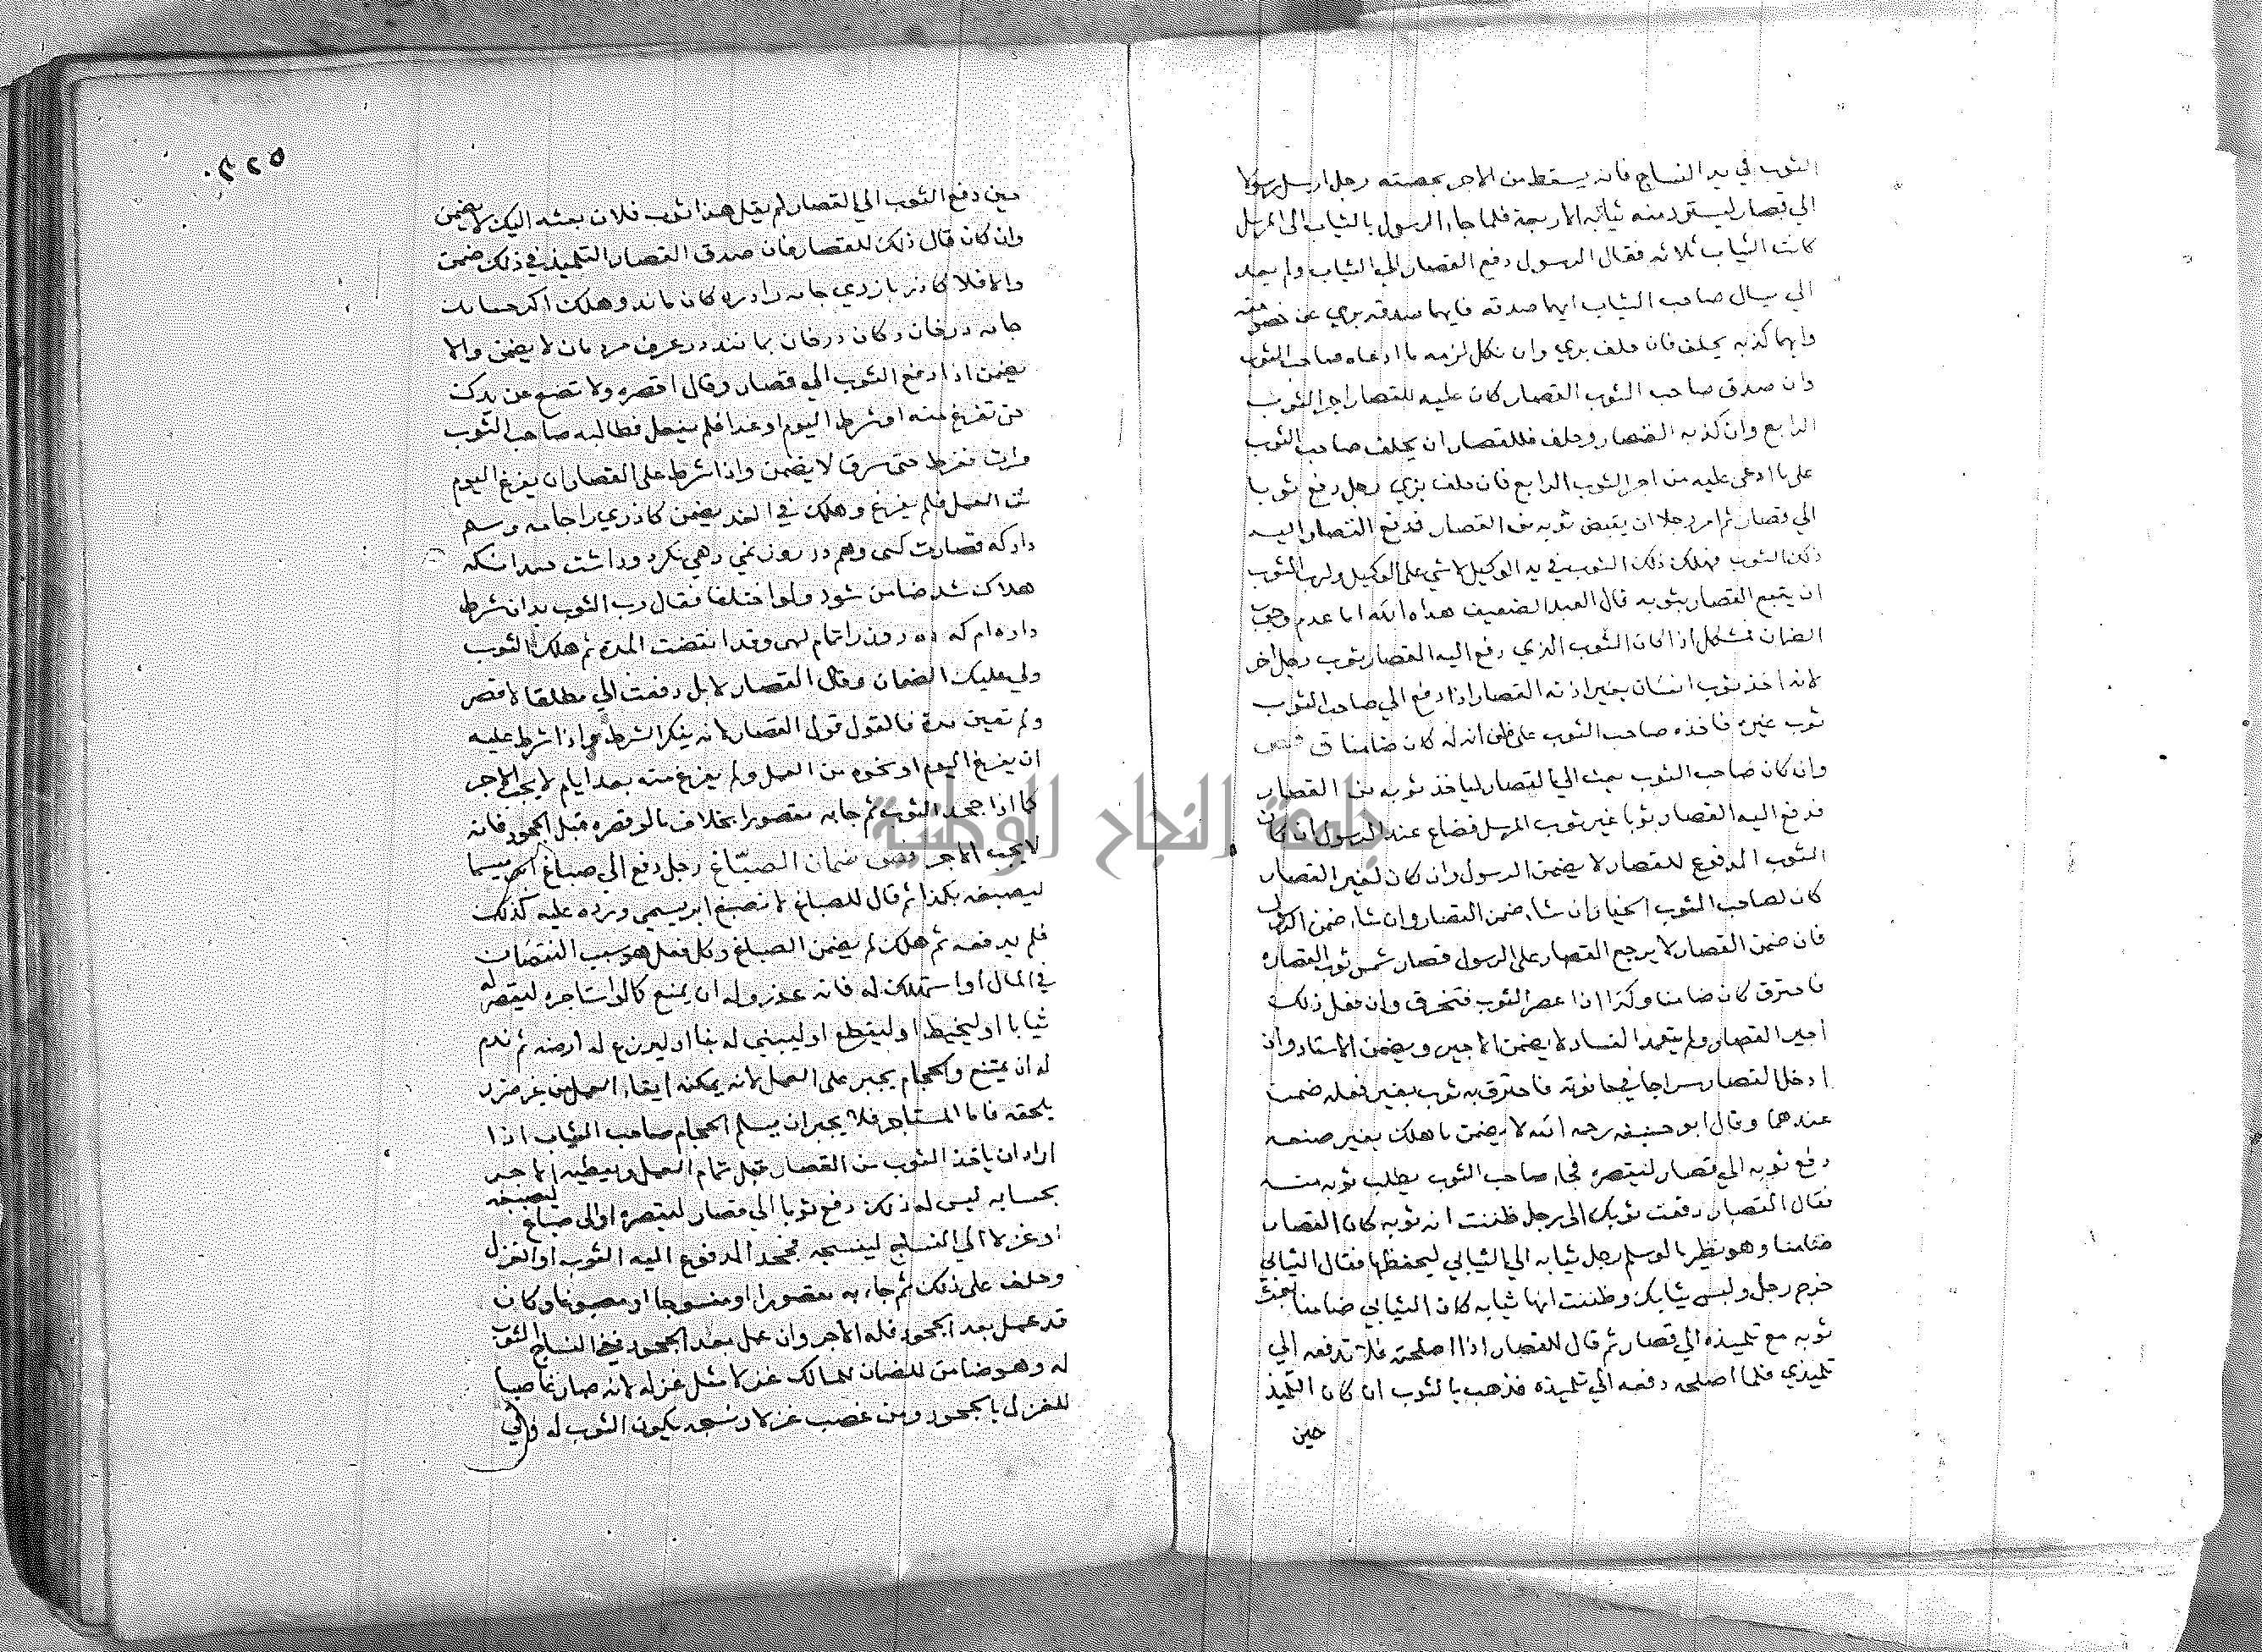 الثوب في يد النساج فانه يسقط من الاجر بحصته رجل ارسل رسولا
الي قصار ليسترد منه ثيابه الاربعة فلما جاء الرسول بالثياب الى المرسل
كانت الثياب ثلاثه فقال الرسول دفع القصار الي الثياب ولم يعد
الي يسال صاحب الثياب ايهما صدقه فايهما صدقه بري عن خصومته
وايهما كذبه يحلف فان حلف بري وان نكل لزمه ما ادعاه صاحب الثوب
وان صدق صاحب الثوب القصار كان عليه للقصار اجر الثوب
الرابع وان كذبه القصار وحلف فللقصار ان يحلف صاحب الثوب
على ما ادعى عليه من اجر الثوب الرابع فان حلف بري رجل دفع ثوبا
الي قصار ثم امر رجلا ان يقبض ثوبه من القصار فدفع القصار اليه
ذلك الثوب فهلك ذلك الثوب في يد الوكيل لا شي على الوكيل ولرب الثوب
ان يتبع القصار بثوبه قال العبد الضعيف هداه الله اما عدم وجوب
الضمان فمشكل اذا كان الثوب الذي دفع اليه القصار ثوب رجل اخر
لانه اخذ ثوب انسان بغير اذنه القصار اذا دفع الي صاحب الثوب
ثوب غيره فاخذه صاحب الثوب على ظن انه له كان ضامنا
وان كان صاحب الثوب بعث الي القصار لياخذ ثوبه من القصار
فدفع اليه القصار ثوبا غير ثوب المرسل فضاع عند الرسول ان كان
الثوب المدفوع للقصار لا يضمن الرسول وان كان لغير القصار
كان لصاحب الثوب الخيار ان شاء ضمن القصار وان شاء ضمن الرسول
فان ضمن القصار لا يرجع القصار على الرسول قصار شمس ثوب القصاره
فاحترق كان ضامنا وكذا اذا عصر الثوب فتخرق وان فعل ذلك
اجير القصار ولم يتعمد الفساد لا يضمن الاجير ويضمن الاستاد وان
ادخل القصار سراجا في حانوته فاحترق به ثوب بغير فعله ضمن
عندهما وقال ابو حنيفه رحمه الله لا يضمن ما هلك بغير صنعه
دفع ثوبه الي قصار ليقصره فجاء صاحب الثوب يطلب ثوبه منه
فقال القصار دفعت ثوبك الى رجل ظننت انه ثوبه كان القصار
ضامنا وهو نظير ما لو سلم رجل ثيابه الي الثيابي ليحفظها فقال الثيابي
خرج رجل ولبس ثيابك وظننت انها ثيابه كان الثيابي ضامنا بعث
ثوبه مع تلميذه الي قصار ثم قال للقصار اذا اصلحته فلا تدفعه الي
تلميذي فلما اصلحه دفعه الي تلميذه فذهب بالثوب ان كان التلميذ
حين
٥٢٢
حين دفع الثوب الي القصار لم يقل هذا ثوب فلان بعثه اليك لا يضمن
وان كان قال ذلك للقصار فان صدق القصار التلميذ في ذلك ضمن
والا فلا
جامه در خان دكان در خان بمانند در عرف مردمان لا يضمن والا
يضمن اذا دفع الثوب الي قصار وقال اقصره ولا تضع من يدك
حتى تفرغ منه او شرط اليوم او غدا فلم يفعل فطالبه صاحب الثوب
مرات ففرط حتى سرق لا يضمن واذا شرط على القصار ان يفرغ اليوم
من العمل فلم يفرغ وهلك في الغد يضمن
هلاك شد ضامن شود ولو اختلفا فقال رب الثوب بدان شرط
داده ام كه ده روز را تمام وقد انقضت المدة ثم هلك الثوب
ولي عليك الضمان وقال القصار لا بل دفعت الي مطلقا لاقصر
ولم تعين مدة فالقول قول القصار لانه ينكر الشرط واذا شرط عليه
ان يفرغ اليوم او نحوه من العمل ولم يفرغ منه بعد ايام لا يجب الاجر
كما اذا جحد الثوب ثم جا به مقصورا بخلاف ما لو قصره قبل الجحود فانه
لا يجب الاجر ضمان الصباغ رجل دفع الي صباغ ابريسما
ليصبغه بكذا ثم قال للصباغ لا تصبغ ابريسمي ورده عليه كذلك
فلم يدفعه ثم هلك لم يضمن الصباغ وكل فعل هو سبب النقصان
في المال او استهلاك له فانه عذر وله ان يمنع كما لو استاجره ليقصر له
ثيابا او ليخيط او ليقطع او ليبني له بنا او ليزرع له ارضه ثم ندم
له ان يمتنع والحجام يجبر على العمل لانه يمكنه ايفاء العمل من غير ضرر
يلحقه فاما المستاجر فلا يجبر ان يسلم الحجام صاحب الثياب اذا
اراد ان ياخذ الثوب من القصار قبل تمام العمل ويعطيه الاجر
بحسابه ليس له ذلك دفع ثوبا الي قصار ليقصره او الى صباغ ليصبغه
او غزلا الي النساج لينسجه فجحد المدفوع اليه الثوب او الغزل
وحلف على ذلك ثم جاء به مقصورا او منسوجا او مصبوغا وكان
قد عمل بعد الجحود فله الاجر وان عمل بعد الجحود ففي النساج الثوب
له وهو ضامن للضمان للمالك غزلا مثل غزله لانه صار غاصبا
للغزل بالجحود ومن غصب غزلا ونسجه يكون الثوب له وفي
جامعة النجاح الوطنية